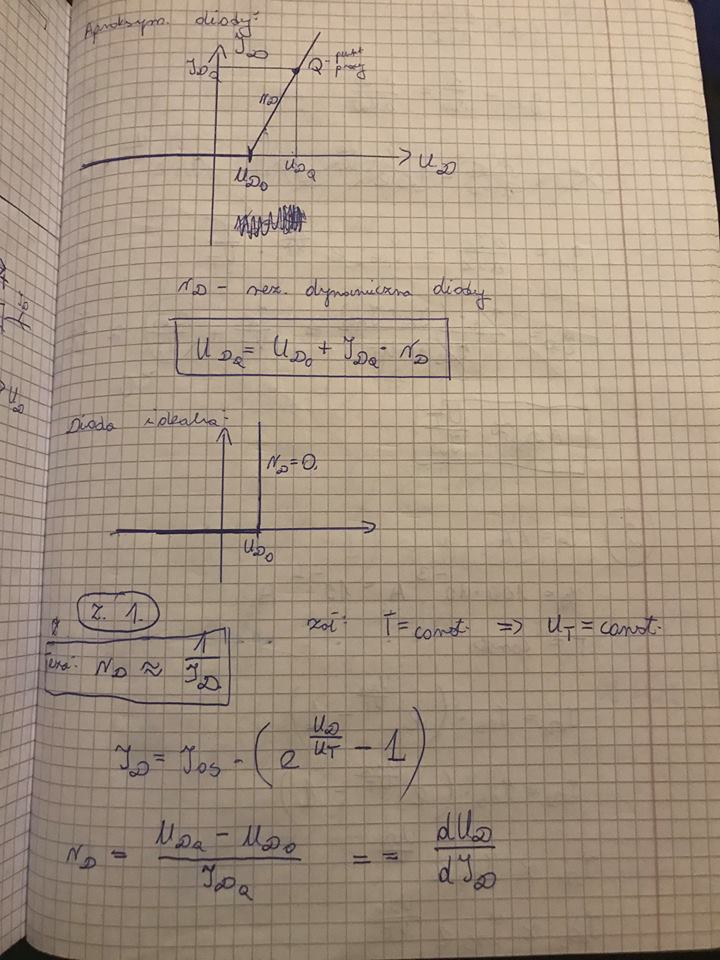 Aproksym. diody:
I_D
I_DQ
Q - punkt
pracy
r_D
U_D0
U_DQ
U_D
r_D - rez. dynamiczna diody
U_DQ = U_D0 + I_DQ · r_D
Dioda idealna:
r_D = 0.
U_D0
Z. 1.
zał: T = const. => U_T = const.
Teza: r_D ≈ 1/I_D
I_D = I_OS · (e^(U_D/U_T) - 1)
r_D = (U_DQ - U_D0)/I_DQ = = dU_D/dI_D
U_D